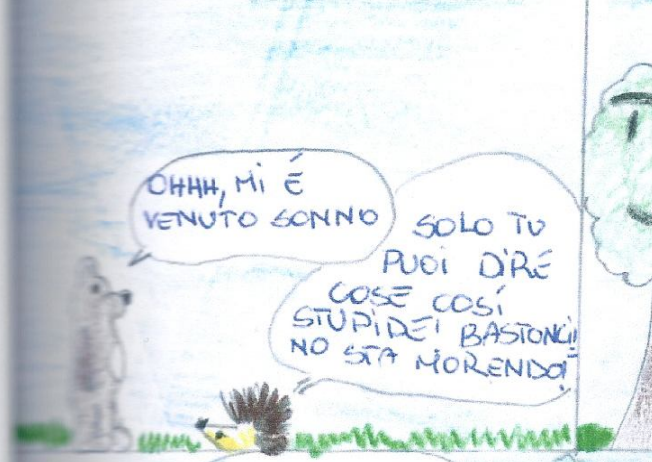 OHHH, Mi É
VENUTO SONNO
SOLO TU
PUOI DIRE
COSE COSÍ
STUPIDE! BASTONCI!!
NO STA MORENDO!